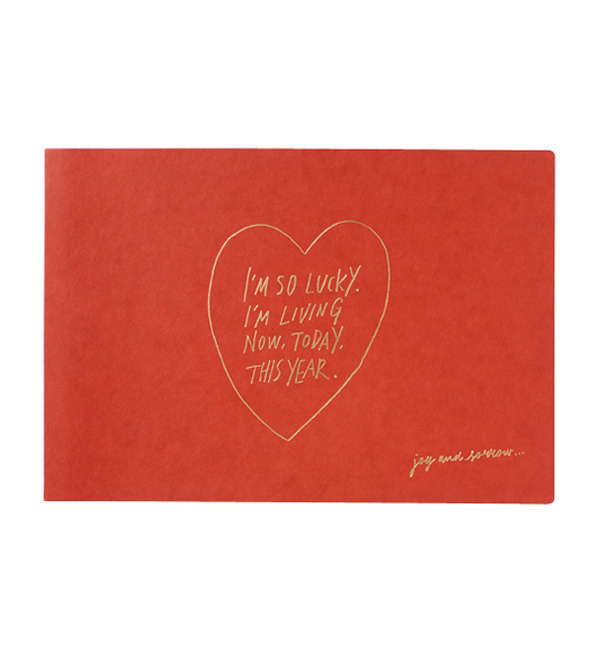 I'M SO LUCKY.
I'M LIVING
NOW, TODAY,
THIS YEAR.
joy and sorrow...